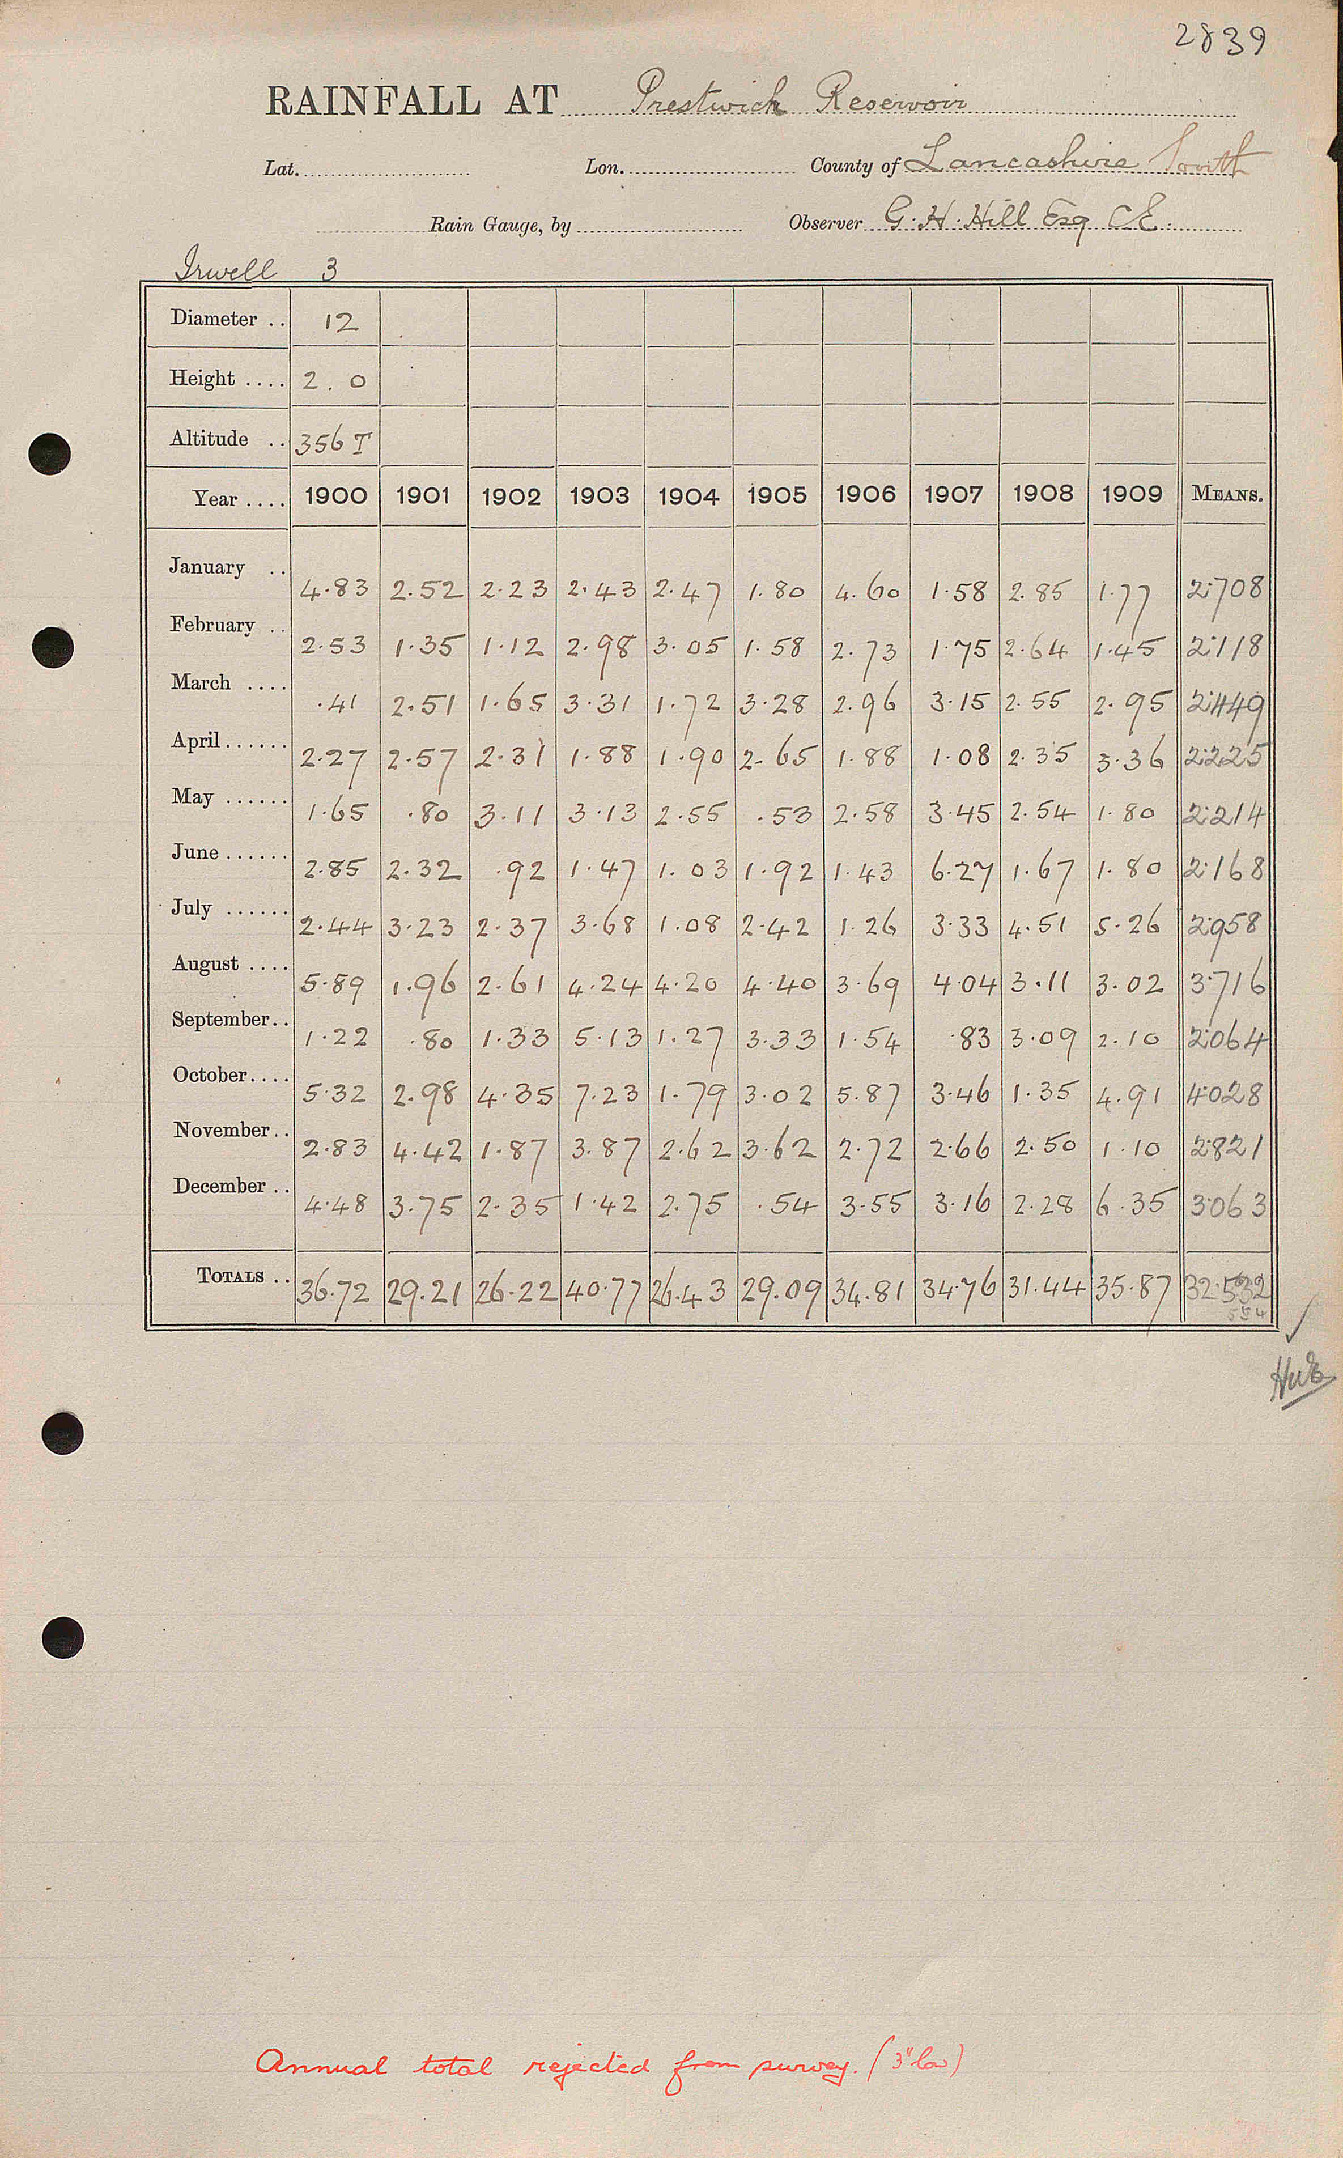 2839
RAINFALL AT Prestwich Reservoir
Lat. Lon. County of Lancashire South
Rain Gauge, by Observer G. H. Hill Esq C.E.
Irwell 3
Diameter .. 12
Height .... 2. 0
Altitude .. 356 T
Year .... 1900 1901 1902 1903 1904 1905 1906 1907 1908 1909 MEANS.
January .. 4.83 2.52 2.23 2.43 2.47 1.80 4.60 1.58 2.85 1.77 2.708
February .. 2.53 1.35 1.12 2.98 3.05 1.58 2.73 1.75 2.64 1.45 2.118
March .... .41 2.51 1.65 3.31 1.72 3.28 2.96 3.15 2.55 2.95 2.449
April...... 2.27 2.57 2.31 1.88 1.90 2.65 1.88 1.08 2.35 3.36 2.225
May ...... 1.65 .80 3.11 3.13 2.55 .53 2.58 3.45 2.54 1.80 2.214
June...... 2.85 2.32 .92 1.47 1.03 1.92 1.43 6.27 1.67 1.80 2.168
July ...... 2.44 3.23 2.37 3.68 1.08 2.42 1.26 3.33 4.51 5.26 2.958
August .... 5.89 1.96 2.61 4.24 4.20 4.40 3.69 4.04 3.11 3.02 3.716
September.. 1.22 .80 1.33 5.13 1.27 3.33 1.54 .83 3.09 2.10 2.064
October.... 5.32 2.98 4.35 7.23 1.79 3.02 5.87 3.46 1.35 4.91 4.028
November.. 2.83 4.42 1.87 3.87 2.62 3.62 2.72 2.66 2.50 1.10 2.821
December .. 4.48 3.75 2.35 1.42 2.75 .54 3.55 3.16 2.28 6.35 3.063
TOTALS .. 36.72 29.21 26.22 40.77 26.43 29.09 34.81 34.76 31.44 35.87 32.532
554
Annual total rejected from survey. (3" low)